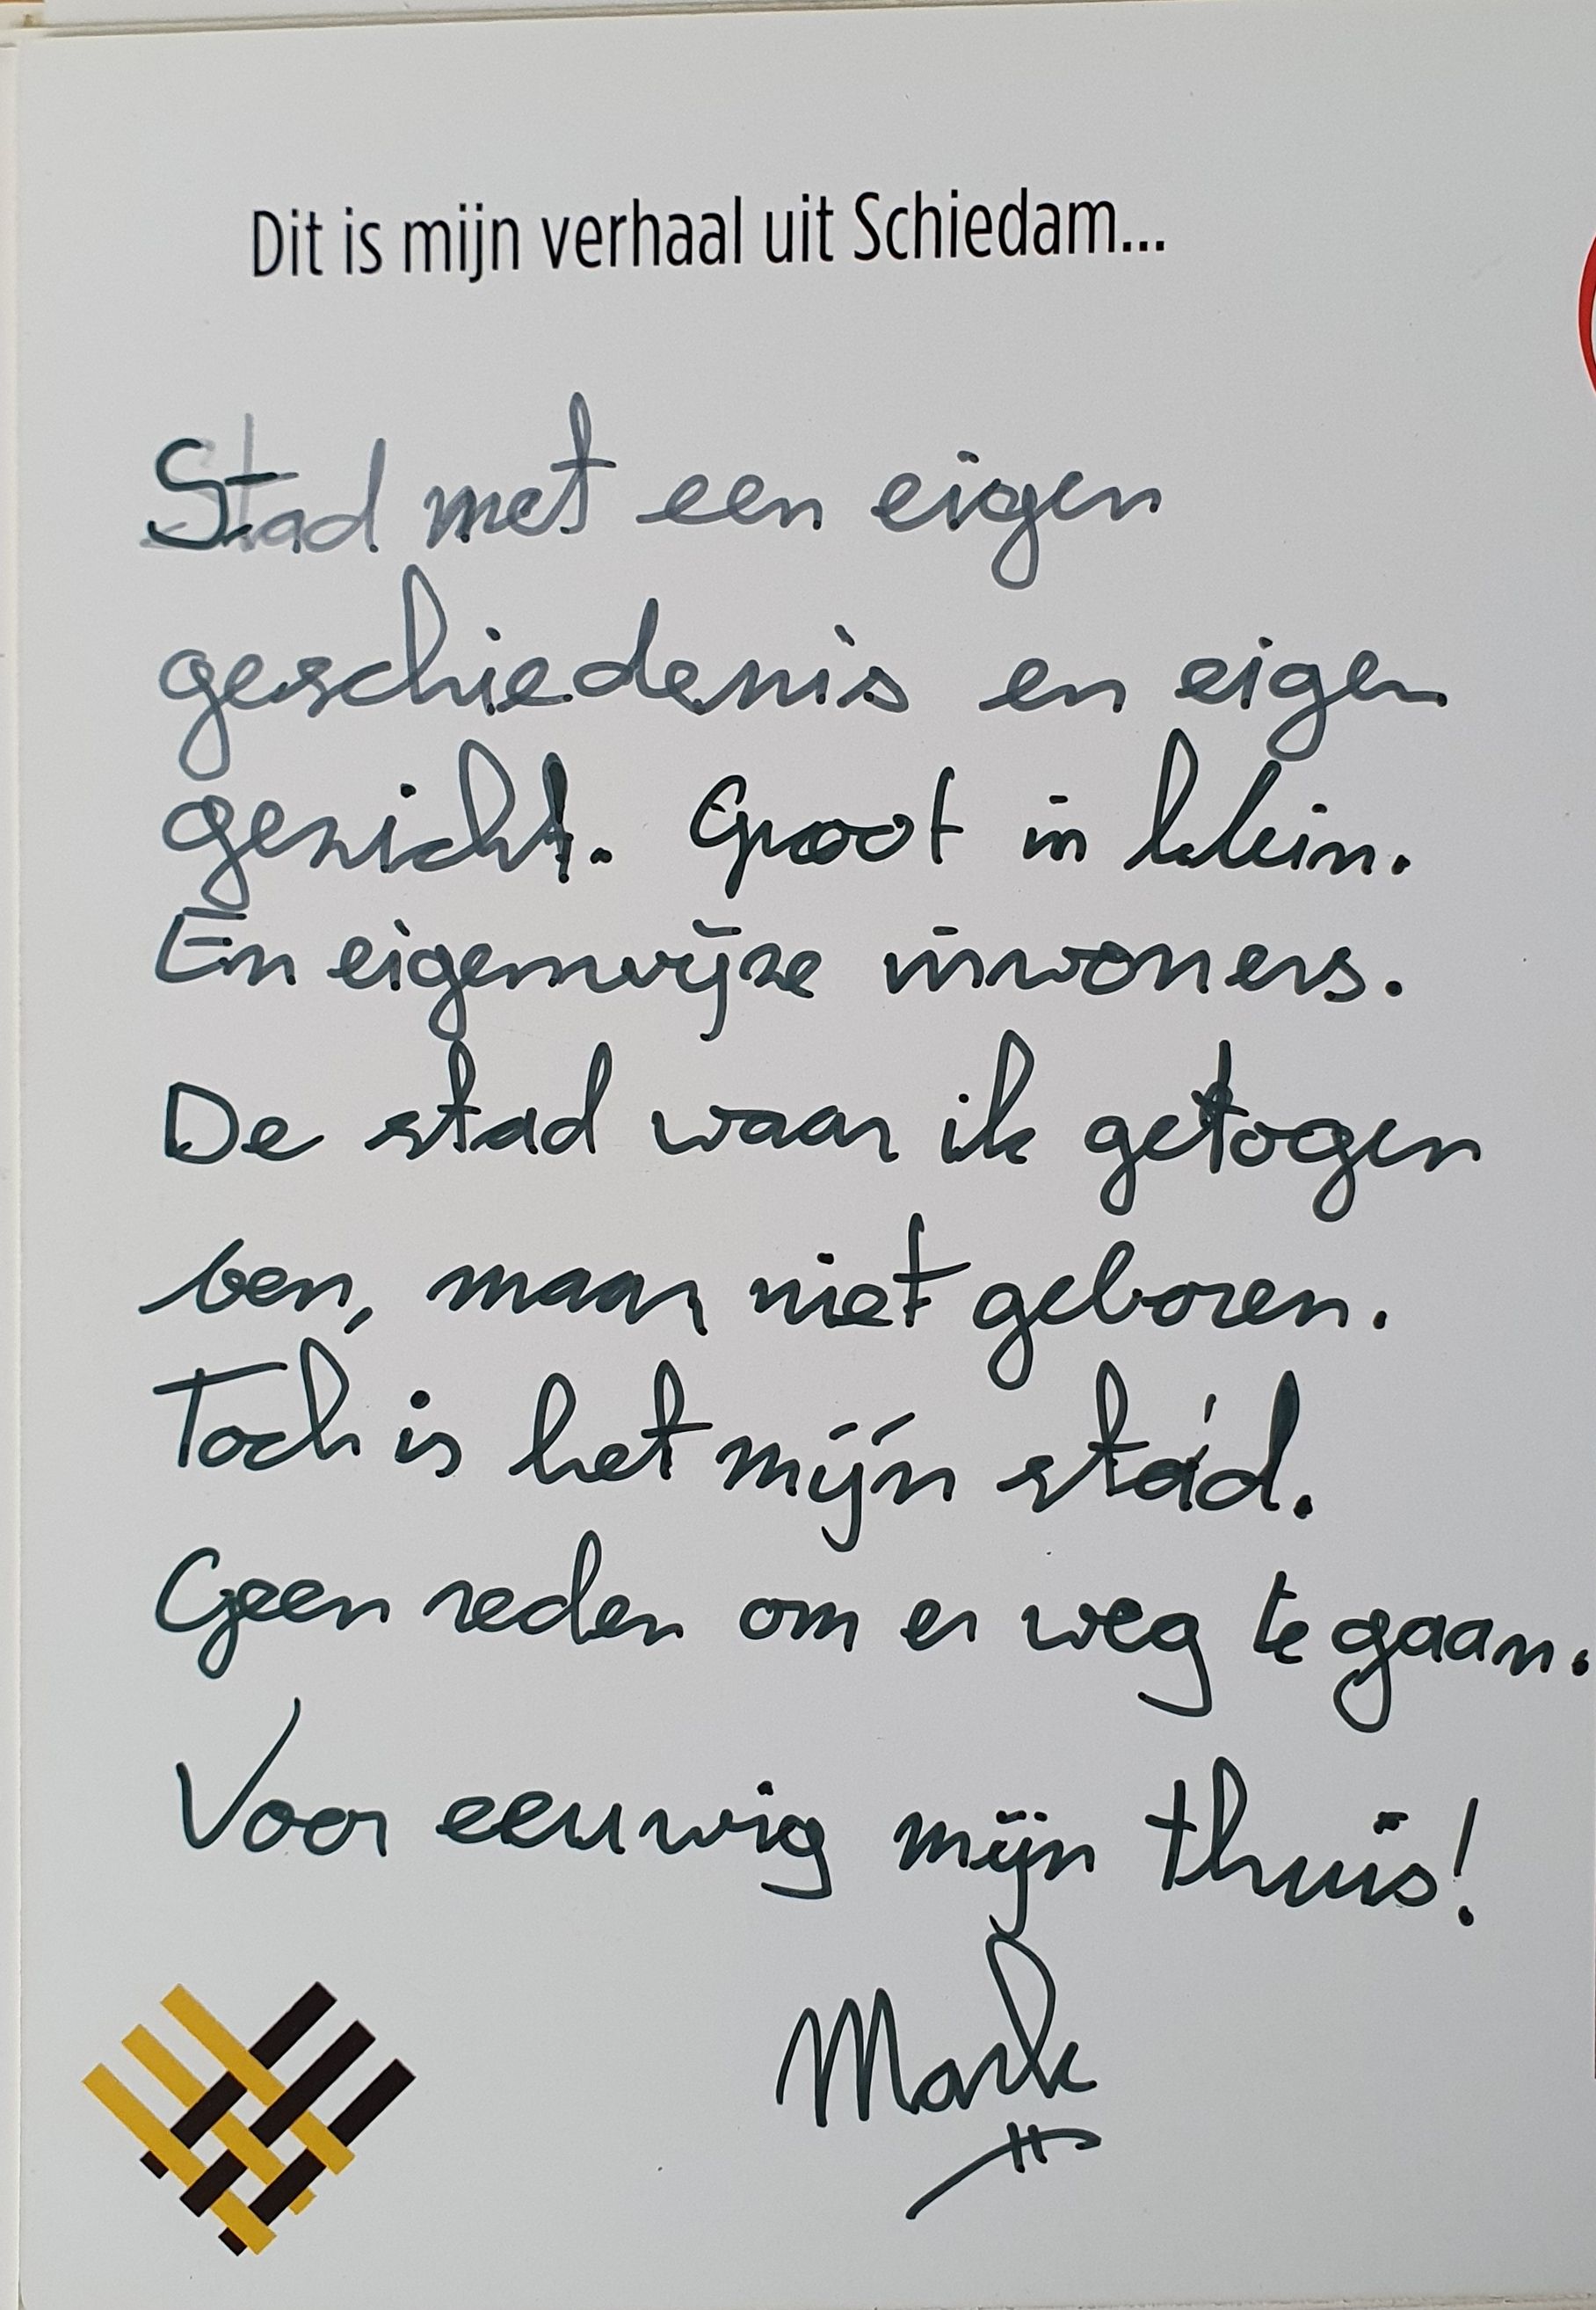 Dit is mijn verhaal uit Schiedam...
Stad met een eigen
geschiedenis en eigen
gezicht. Groot in klein.
En eigenwijze inwoners.
De stad waar ik getogen
ben, maar niet geboren.
Toch is het míjn stád.
Geen reden om er weg te gaan.
Voor eeuwig mijn thuis!
Mark